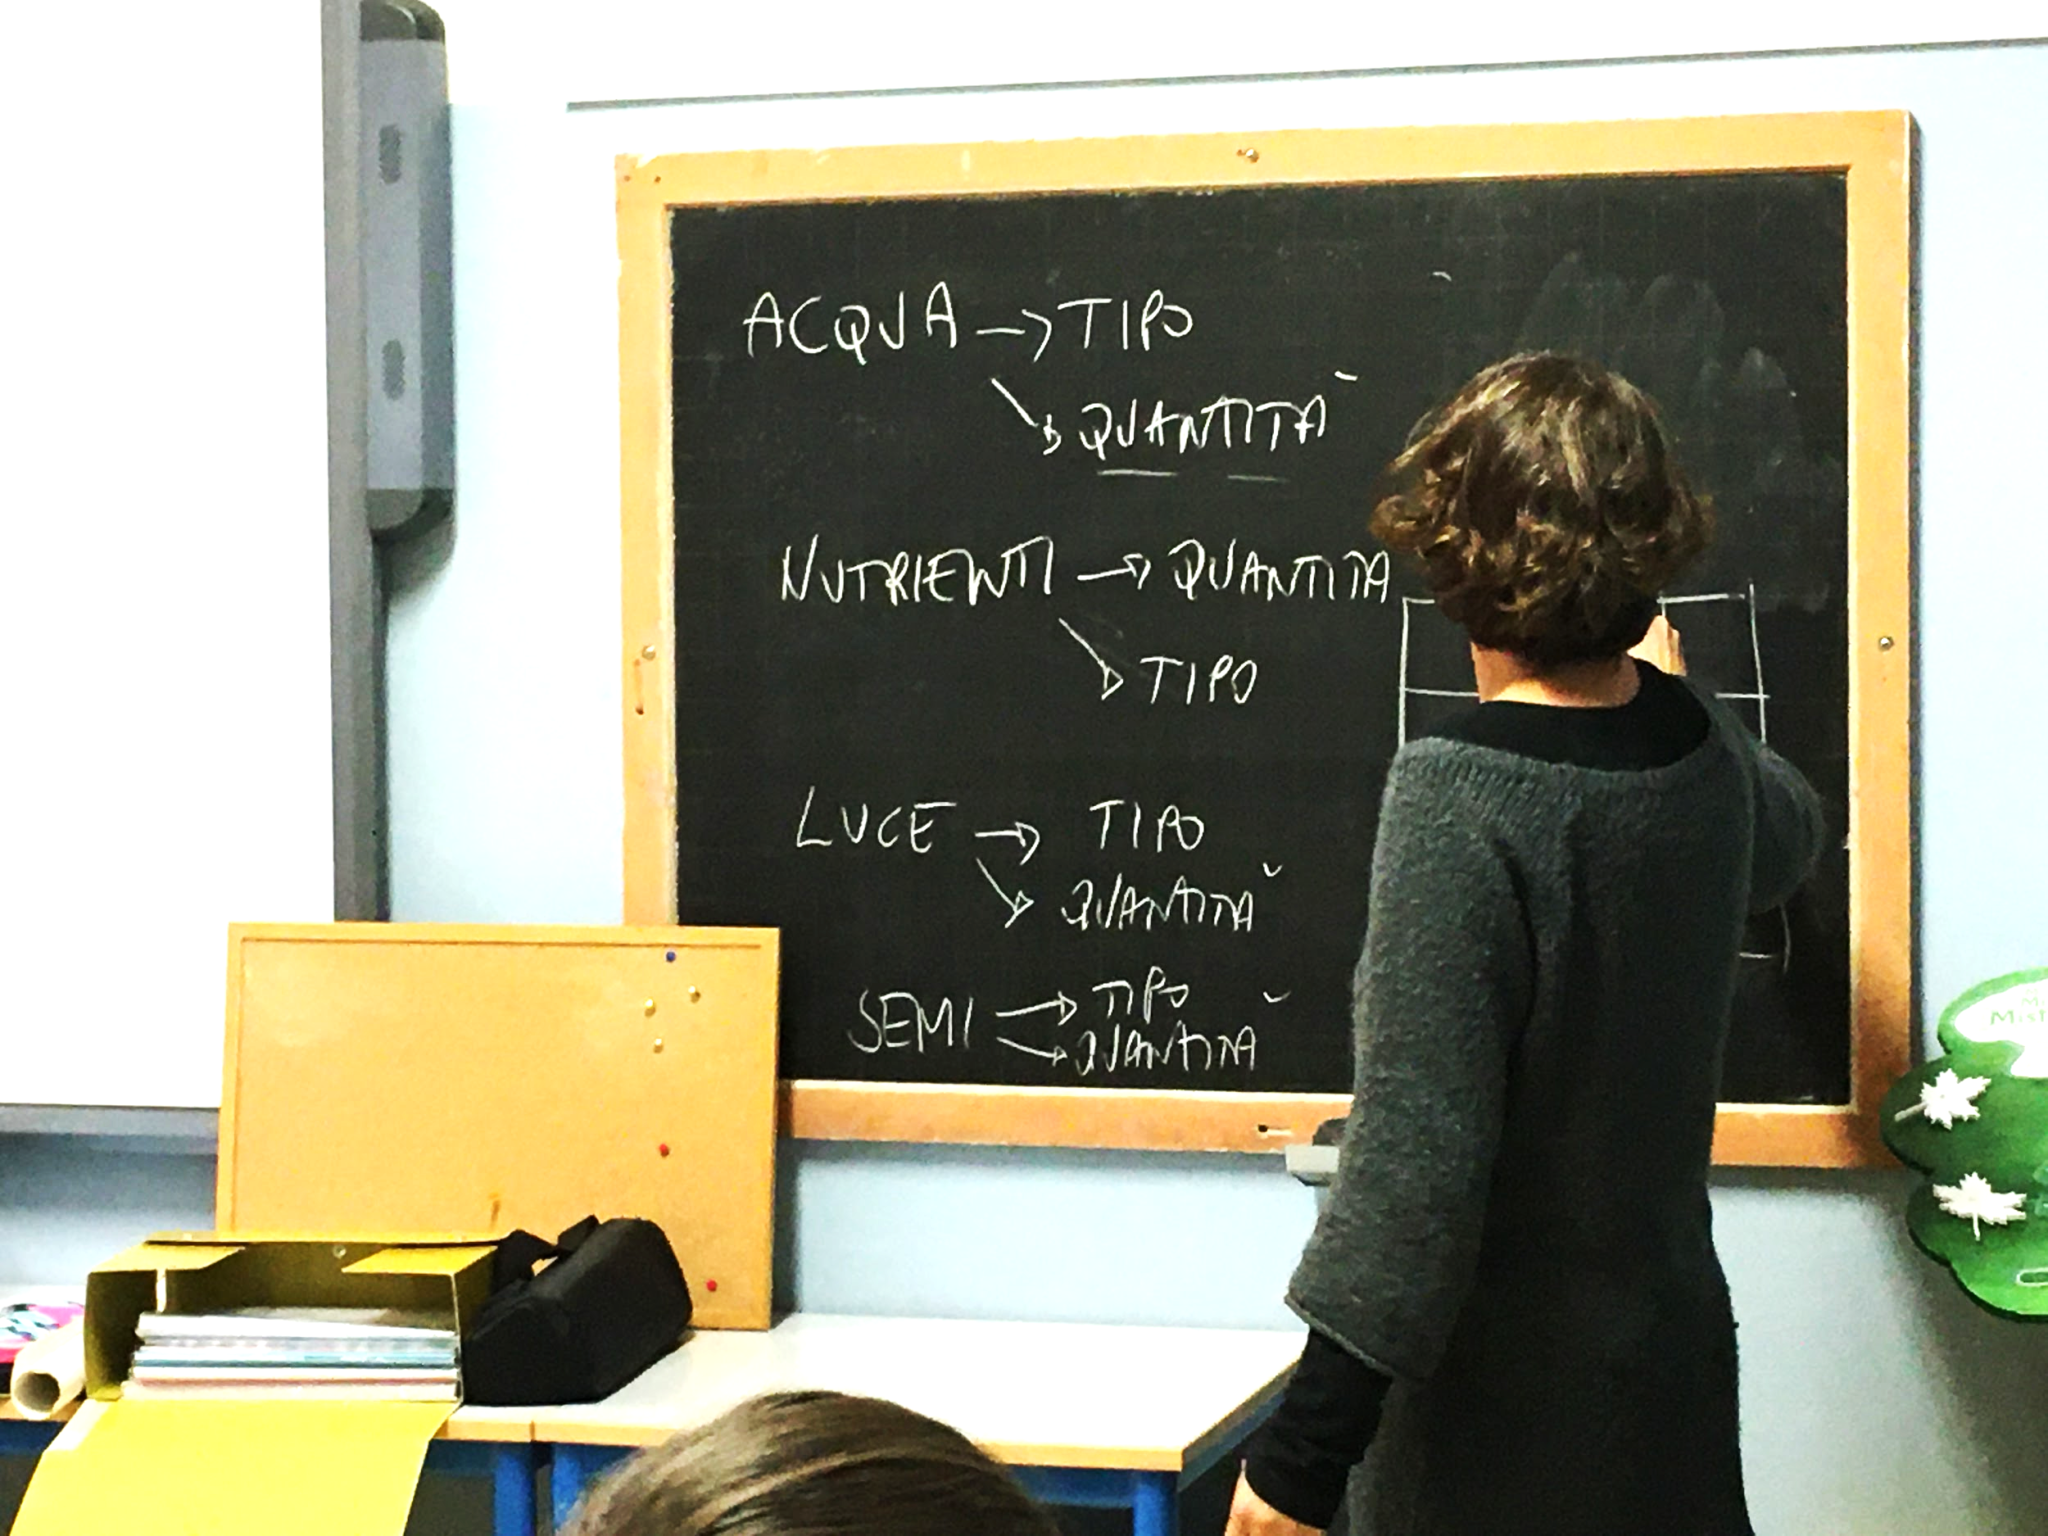 ACQUA → TIPO
QUANTITÀ
NUTRIENTI → QUANTITA
TIPO
LUCE → TIPO
QUANTITÀ
SEMI → TIPO
QUANTITÀ